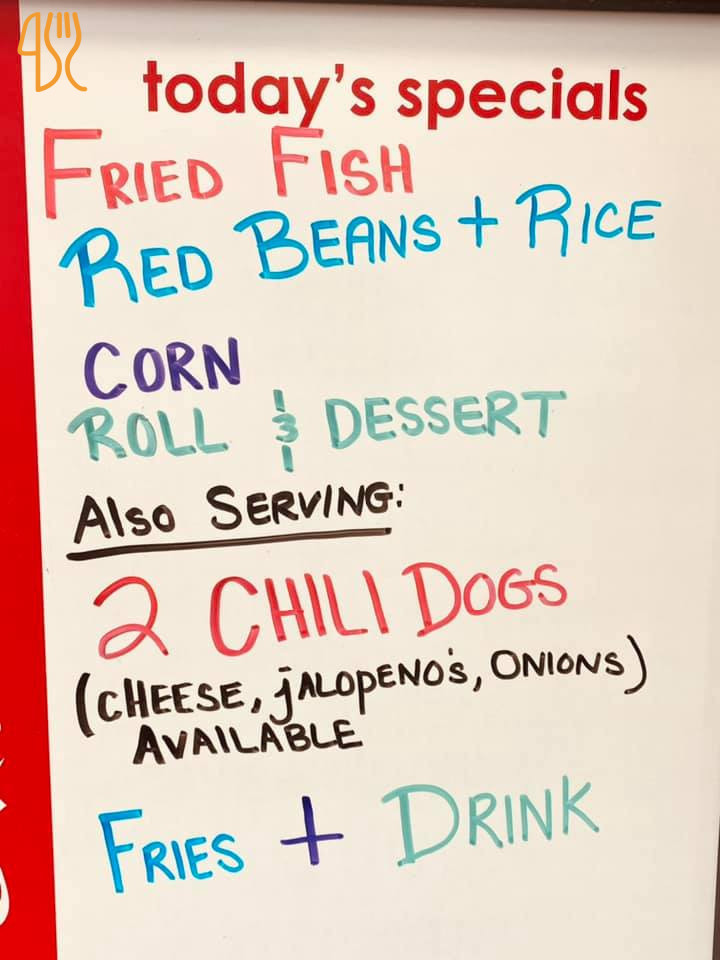 today's specials
FRIED FISH
RED BEANS + RICE
CORN
ROLL & DESSERT
Also SERVING:
2 CHILI DOGS
(CHEESE, jALOPENO's, ONIONS)
AVAILABLE
FRIES + DRINK